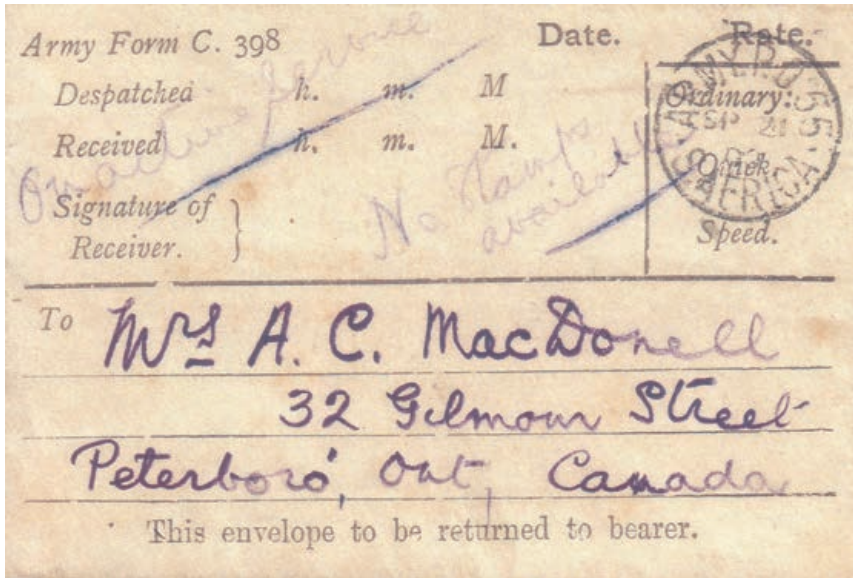 Army Form C. 398 Date. Rate.
Despatched h. m. M Ordinary:
Received h. m. M.
Quick
Signature of
Receiver. } Speed.
On active service
No stamps
available
ARMY P.O. 55
SP 21
S. AFRICA
To Mrs A. C. MacDonell
32 Gilmour Street
Peterboro', Ont, Canada
This envelope to be returned to bearer.